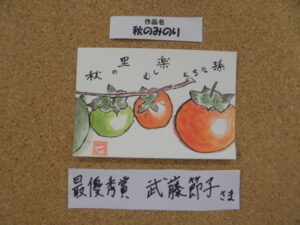 作品名
秋のみのり
秋の里楽むしとちた孫
最優秀賞 武藤節子さま